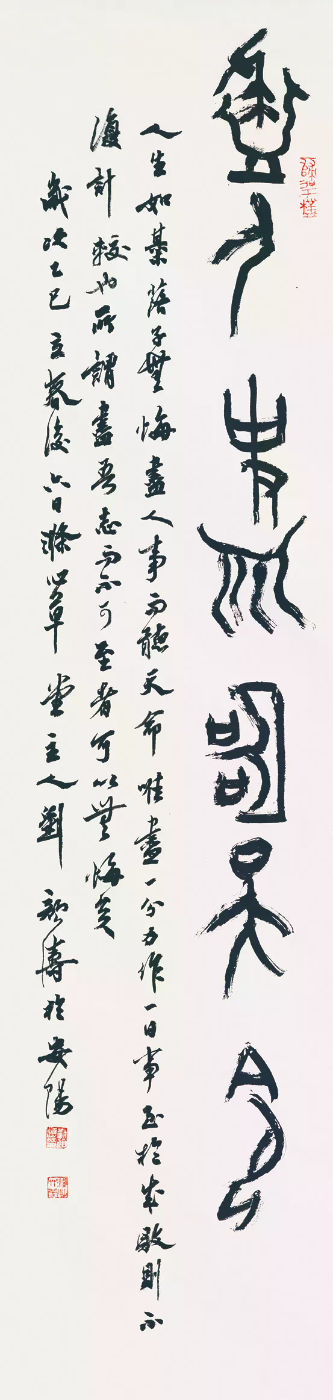 盡人事而聽天命
人生如棊落子無悔盡人事而聽天命唯盡一分力作一日事至於成敗則不
復計較也所謂盡吾志而不可至者可以無悔矣
歲次乙巳立春後六日滌心草堂主人劉濤於安陽